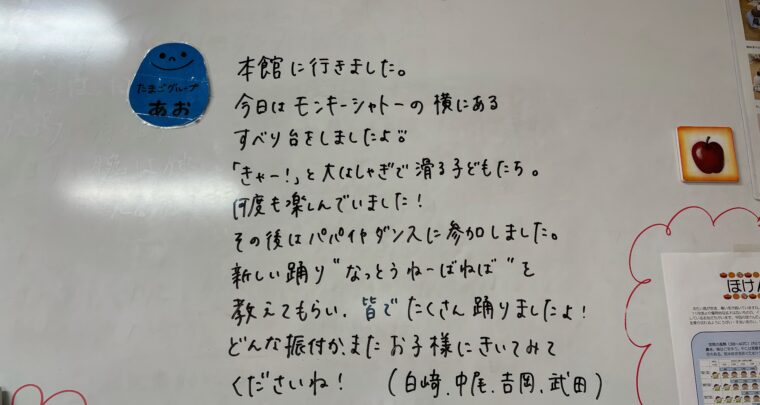 たまごグループ
あお
本館に行きました。
今日はモンキーシャトーの横にある
すべり台をしましたよ。
「きゃー!」と大はしゃぎで滑る子どもたち。
何度も楽しんでいました!
その後はパパイヤダンスに参加しました。
新しい踊り"なっとうねーばねば"を
教えてもらい、皆でたくさん踊りましたよ!
どんな振付か、またお子様にきいてみて
くださいね! (白崎、中尾、吉岡、武田)
ほけん